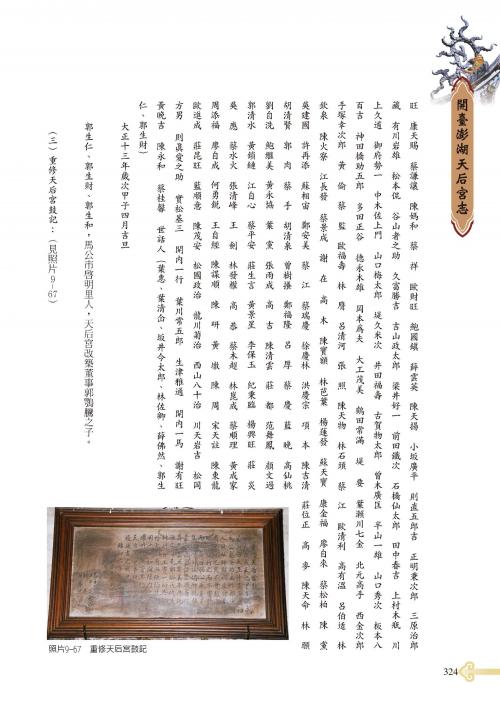 開臺澎湖天后宮志
旺 康天賜 蔡謙讓 陳媽和 蔡 祥 歐財旺 鮑國鎮 薛雲英 陳天揚 小坂廣平 則直五郎吉 正明秉次郎 三原治郎
藏 有川岩雄 松本倪 谷山者之助 久富勝吉 吉山政太郎 梁井好一 前田鐵次 石橋仙太郎 田中春吉 上村木瓶 川
上久通 御府勢一 中木佐上門 山口梅太郎 堤久米次 井田福壽 古賀物太郎 曾木廣匡 平山一雄 山口秀次 板本八
百吉 神田橋助五郎 多田正谷 德永木雄 岡本為夫 大工茂美 鶴田常滿 堤 要 葉瀨川七金 北元高手 西金次郎
手塚幸次郎 黃 倫 蔡 監 歐福壽 林 膺 呂清河 張 照 陳天物 林石頭 蔡 江 歐清利 高有溫 呂伯遙 林
欽泉 陳火寮 江長發 蔡景成 謝 在 高 木 陳寶顯 林芭葉 楊蓬發 蘇天寶 康金福 廖自來 蔡松柏 陳 黨
吳建國 許再添 蘇相宙 鄭安美 蔡 江 蔡瑞慶 徐慶林 洪慶宗 項 本 陳吉清 莊位正 高 參 陳天命 林 頤
胡清賢 郭 肉 蔡 手 胡清泉 曾樹攘 鄭福隆 呂 厚 蔡 慶 藍 晚 高仙桃
劉自洗 鮑繼美 黃永協 葉 薰 張雨成 高 吉 陳清雲 莊 都 范舞鳳 顏文過
郭清水 黃鎮鏈 江自心 蔡平安 莊生言 黃景星 李保玉 紀秉臨 楊興旺 莊 炎
奐 應 蔡水火 張清峰 王 劍 林發權 高 恭 蔡木超 林崑成 蔡順理 黃成家
周添福 廖自成 何勇銳 王自經 陳謀順 陳 研 黃 墩 陳 周 宋天註 陳東龍
歐進成 莊昆旺 藍順意 陳茂安 松國政治 龍川菊治 西山八十治 川天岩吉 松岡
方男 則眞愛之助 實松基三 関內一行 葉川常五郎 生津雅通 関內一馬 謝有旺
黃晚吉 陳永和 蔡桂馨 世話人（葉惠、葉清合、坂井令太郎、林佐卿、薛佛然、郭生
仁、郭生財）
大正十三年歲次甲子四月吉旦
郭生仁、郭生財、郭生和，馬公市啓明里人，天后宮改築董事郭鶚騰之子。
（三）重修天后宮鼓記：（見照片9－67）
照片9-67 重修天后宮鼓記
324